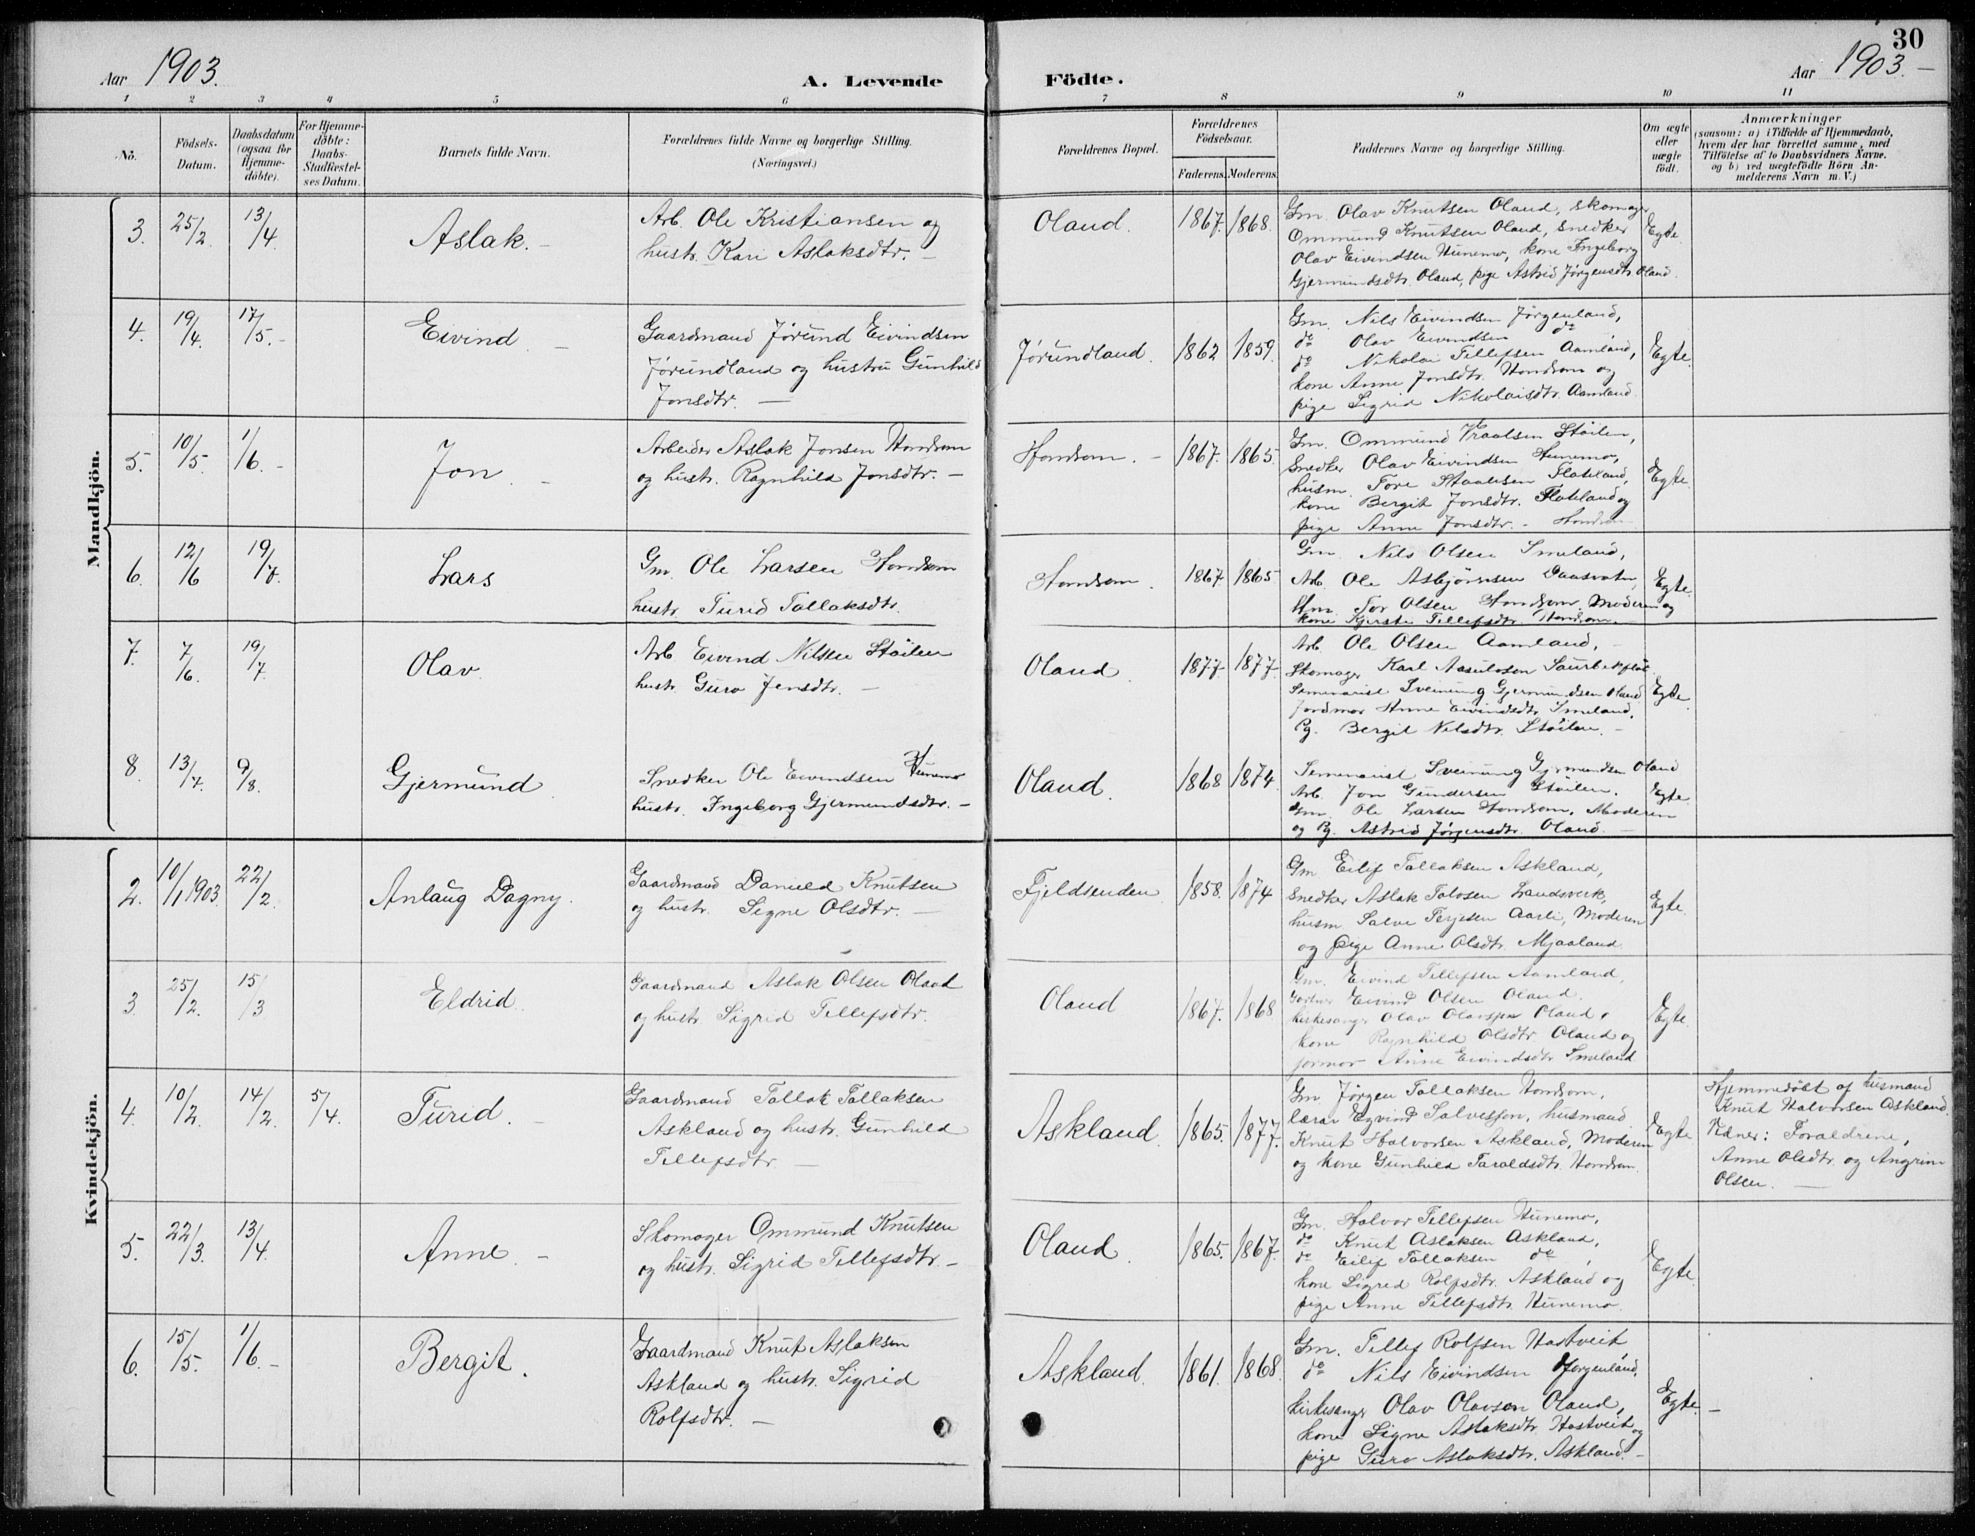 30
Aar 1903.
A. Levende Födte.
Aar 1903. —
1 2 3 4 5 6 7 8 9 10 11
No.
Födsels-
Datum.
Daabsdatum
(ogsaa for
Hjemme-
döbte).
For Hjemme-
döbte:
Daabs-
Stadfæstel-
ses Datum.
Barnets fulde Navn.
Forældrenes fulde Navne og borgerlige Stilling.
(Næringsvei.)
Forældrenes Bopæl.
Forældrenes
Födselsaar.
Faderens. Moderens.
Faddernes Navne og borgerlige Stilling.
Om ægte
eller
uægte
födt.
Anmærkninger
(saasom: a) i Tilfælde af Hjemmedaab,
hvem der har forrettet samme, med
Tilföielse af to Daabsvidners Navne,
og b) ved uægtefödte Börn An-
melderens Navn m. V.)
Mandkjön.
3. 25/2. 13/4. Aslak. —
Arb. Ole Kristiansen og
hustr. Kari Aslaksdtr. —
Oland. 1867. 1868.
Gm. Olav Knutsen Oland, skomager
Ommund Knutsen Oland, snedker
Olav Eivindsen Hunemo, kone Ingeborg
Gjermundsdtr. Oland, pige Astrid Jørgensdtr. Oland.
Egte.
4. 19/4. 17/5. — Eivind —
Gaardmand Jørund Eivindsen
Jørundland og hustru Gunhild
Jonsdtr. —
Jørundland. 1862 1859.
Gm. Nils Eivindsen Jørgenland,
do Olav Eivindsen do
do Nikolai Tellefsen Aamland,
kone Anne Jonsdtr. Homdrom og
pige Sigrid Nikolaisdtr. Aamland.
Egte.
5. 10/5. 1/6. — Jon —
Arbeider Aslak Jonsen Homdrom
og hustr. Ragnhild Jonsdtr. —
Homdrom. — 1867. 1865.
Gm. Ommund Vraalsen Støilen,
Snedker Olav Eivindsen Hunemo,
husm. Tore Flateland,
kone Bergit Jonsdtr. Flateland og
pige Anne Jonsdtr. — Homdrom
Egte.
6. 12/6 19/7. Lars
Gm. Ole Larsen Homdrom
hustr. Turid Tallaksdtr.
Homdrom. 1867 1865
Gm. Nils Olsen Smeland,
Arb. Ole Asbjørnsen Daasvatn,
Gm. Tor Olsen Homdrom. Moderen og
kone Kjersti Tellefsdtr. Homdrom.
Egte.
7. 7/6. 19/7. Olav
Arb Eivind Nilsen Støilen
hustr. Guro Jensdtr. —
Oland 1877. 1877.
Arb. Ole Olsen Aamland, —
Skomager Karl
Seminarist Sveinung Gjermundsen Oland
Jordmor Anne Eivindsdtr. Smeland.
Pg. Bergit Nilsdtr. Støilen. —
Egte
8. 13/7. 9/8. Gjermund
Snedker Ole Eivindsen Hunemo
hustr. Ingeborg Gjermundsdtr. —
Oland. 1868 1874.
Seminarist Sveinung Gjermundsen Oland
Arb. Jon Gundersen Støilen.
Gm. Ole Larsen Homdrom. Moderen
og Pg. Astrid Jørgensdtr. Oland. —
Egte.
Kvindekjön.
2. 10/1 1903. 22/2. Anlaug Dagny.
Gaardmand Danield Knutsen
og hustr. Signe Olsdtr. —
Fjeldsenden 1858. 1874
Gm Eilif Tallaksen Askland,
Snedker Aslak Talosen Landsverk,
husm Salve Terjesen Aarli, Moderen
og pige Anne Olsdtr Mjaaland
Egte.
3. 25/2. 15/3 Eldrid
Gaardmand Aslak Olsen Oland
og hustr Sigrid Tellefsdtr.
Oland 1867. 1868
Gm. Eivind Tellefsen Aamland,
Eivind Olsen Oland.
kirkesanger Olav Olavsen Oland,
kone Ragnhild Olsdtr. Oland og
jormor Anne Eivindsdtr Smeland
Egte.
4. 10/2. 14/2. 5/4. Turid. —
Gaardmand Tallak Tallaksen
Askland og hustr. Gunhild
Tellefsdtr —
Askland. 1865. 1877.
Gm. Jørgen Tallaksen Homdrom,
lærar Eyvind Salvesson, husmand
Knut Halvorsen Askland, Moderen
og kone Gunhild Taraldsdtr. Homdrom.
Egte
Hjemmedøbt af husmand
Knut Halvorsen Askland.
Vidner: Forældrene,
Anne Olsdtr. og Angrim
Olsen. —
5. 22/3. 13/4. Anne —
Skomager Ommund Knutsen
og hustr. Sigrid Tellefsdtr. —
Oland. 1865. 1867.
Gm. Halvor Tellefsen Hunemo,
do Knut Aslaksen Askland,
do Eilif Tallaksen do,
kone Sigrid Rolfsdtr. Askland og
pige Anne Tellefsdtr. Hunemo.
Egte.
6. 15/5. 1/6. — Bergit.
Gaardmand Knut Aslaksen
Askland og hustr. Sigrid
Rolfsdtr. —
Askland. 1861. 1868.
Gm. Tellef Rolfsen Hastveit
do Nils Eivindsen Jørgenland,
kirkesanger Olav Olavsen Oland,
kone Signe Aslaksdtr. Hastveit og
pige Guro Aslaksdtr. Askland. —
Egte. —